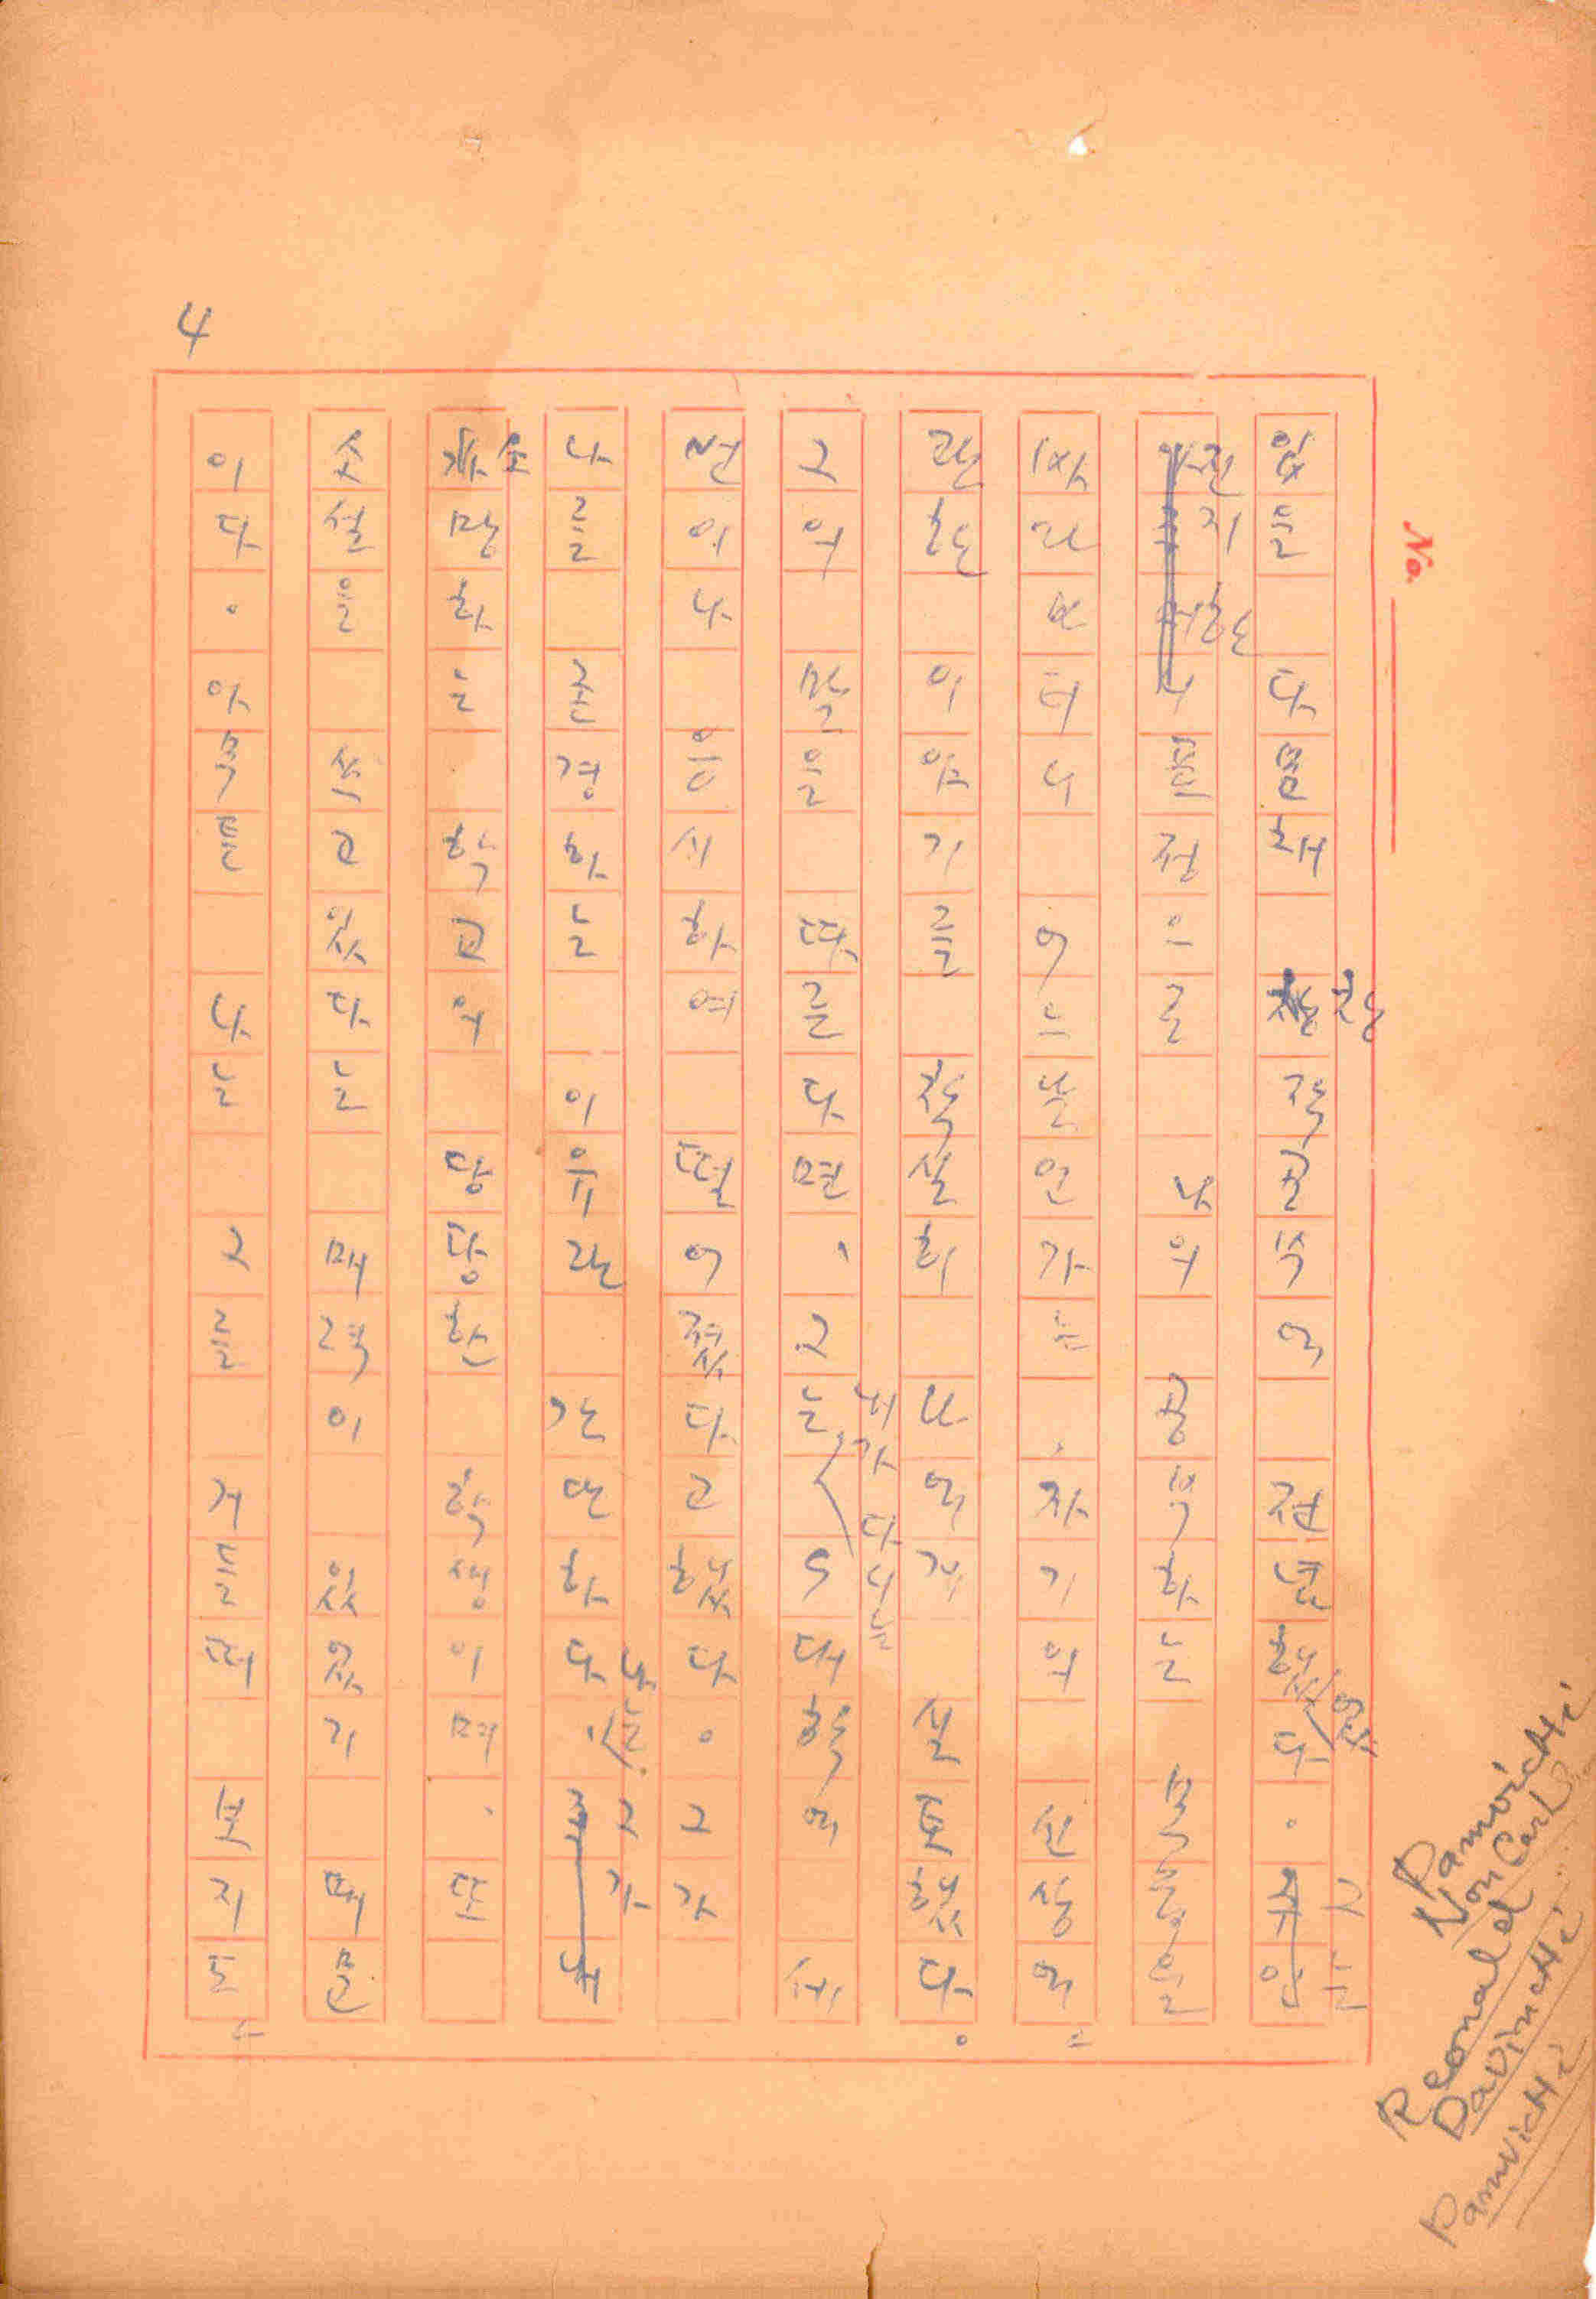 4
No.
입을 다뭄채 창작공부에 전념했었다. 그는
진지한 표정으로 나의 공부하는
바라보더니 어느날인가는, 자기의 신상에=
관한 이야기를 착실히 나에게 실토했다。
그의 말을 따른다면, 그는 내가 다니는 S대학에 세
번이나 응시하여 떨어졌다고 했다。 그가
나를 존경하는 이유란 간단하다. 나는 그가
소망하는 학교의 당당한 학생이며, 또
소설을 쓰고 있다는 매력이 있었기 때문
이다. 아묵튼 나는 그를 거들떠 보지도=
RamvicHi
Von Carl
Reonald
DavincHi
RamvicHi